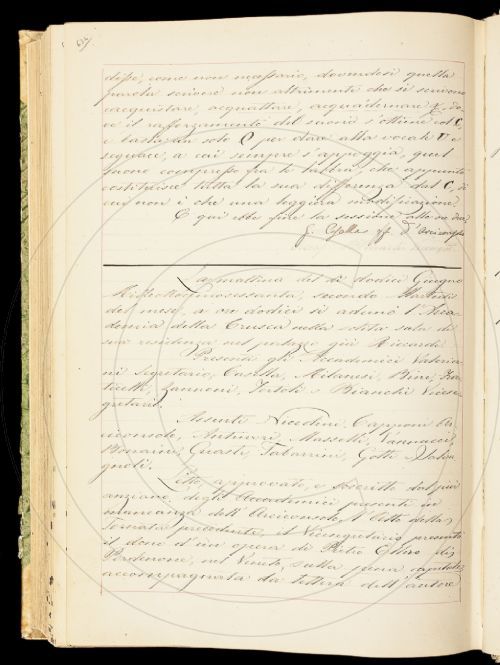 disse, come non necessario, dovendosi quella
parola scrivere non altrimenti che si scrivono
acquistare, acquattare, acquadernare; do-
ve il rafforzamento del suono s'ottiene col C,
e basta un solo Q per dare alla vocale U
seguace, a cui sempre s'appoggia, quel
suono compreso fra le labbra, che appunto
costituisce tutta la sua differenza dal C, di
cui non è che una leggiera modificazione.
E qui ebbe fine la sessione alle ore due
La mattina del dì dodici Giugno
Milleottocentosessanta, secondo Martedì
del mese, a ore dodici si adunò l'Acca-
demia della Crusca nella solita sala di
sua residenza nel palazzo già Riccardi
Presenti gli Accademici Valeria-
ni Segretario, Casella, Milanesi, Bini, Fra-
ticelli, Zannoni, Tortoli e Bianchi Vicese-
gretario.
Assenti Nuccolini, Capponi Ar-
ciconsolo, Antinori, Masselli, Vannucci,
Bonaini, Guasti, Tabarrini, Gotti e Salva-
gnoli.
Letto, approvato, e soscritto dal più
anziano degli Accademici presenti in
mancanza dell'Arciconsolo, l'Atto della
Tornata precedente, il Vicesegretario presentò
il dono d'un opera di Pietro di
Pordenone, nel Veneto, sulla pena capitale,
accompagnata da lettera dell'autore